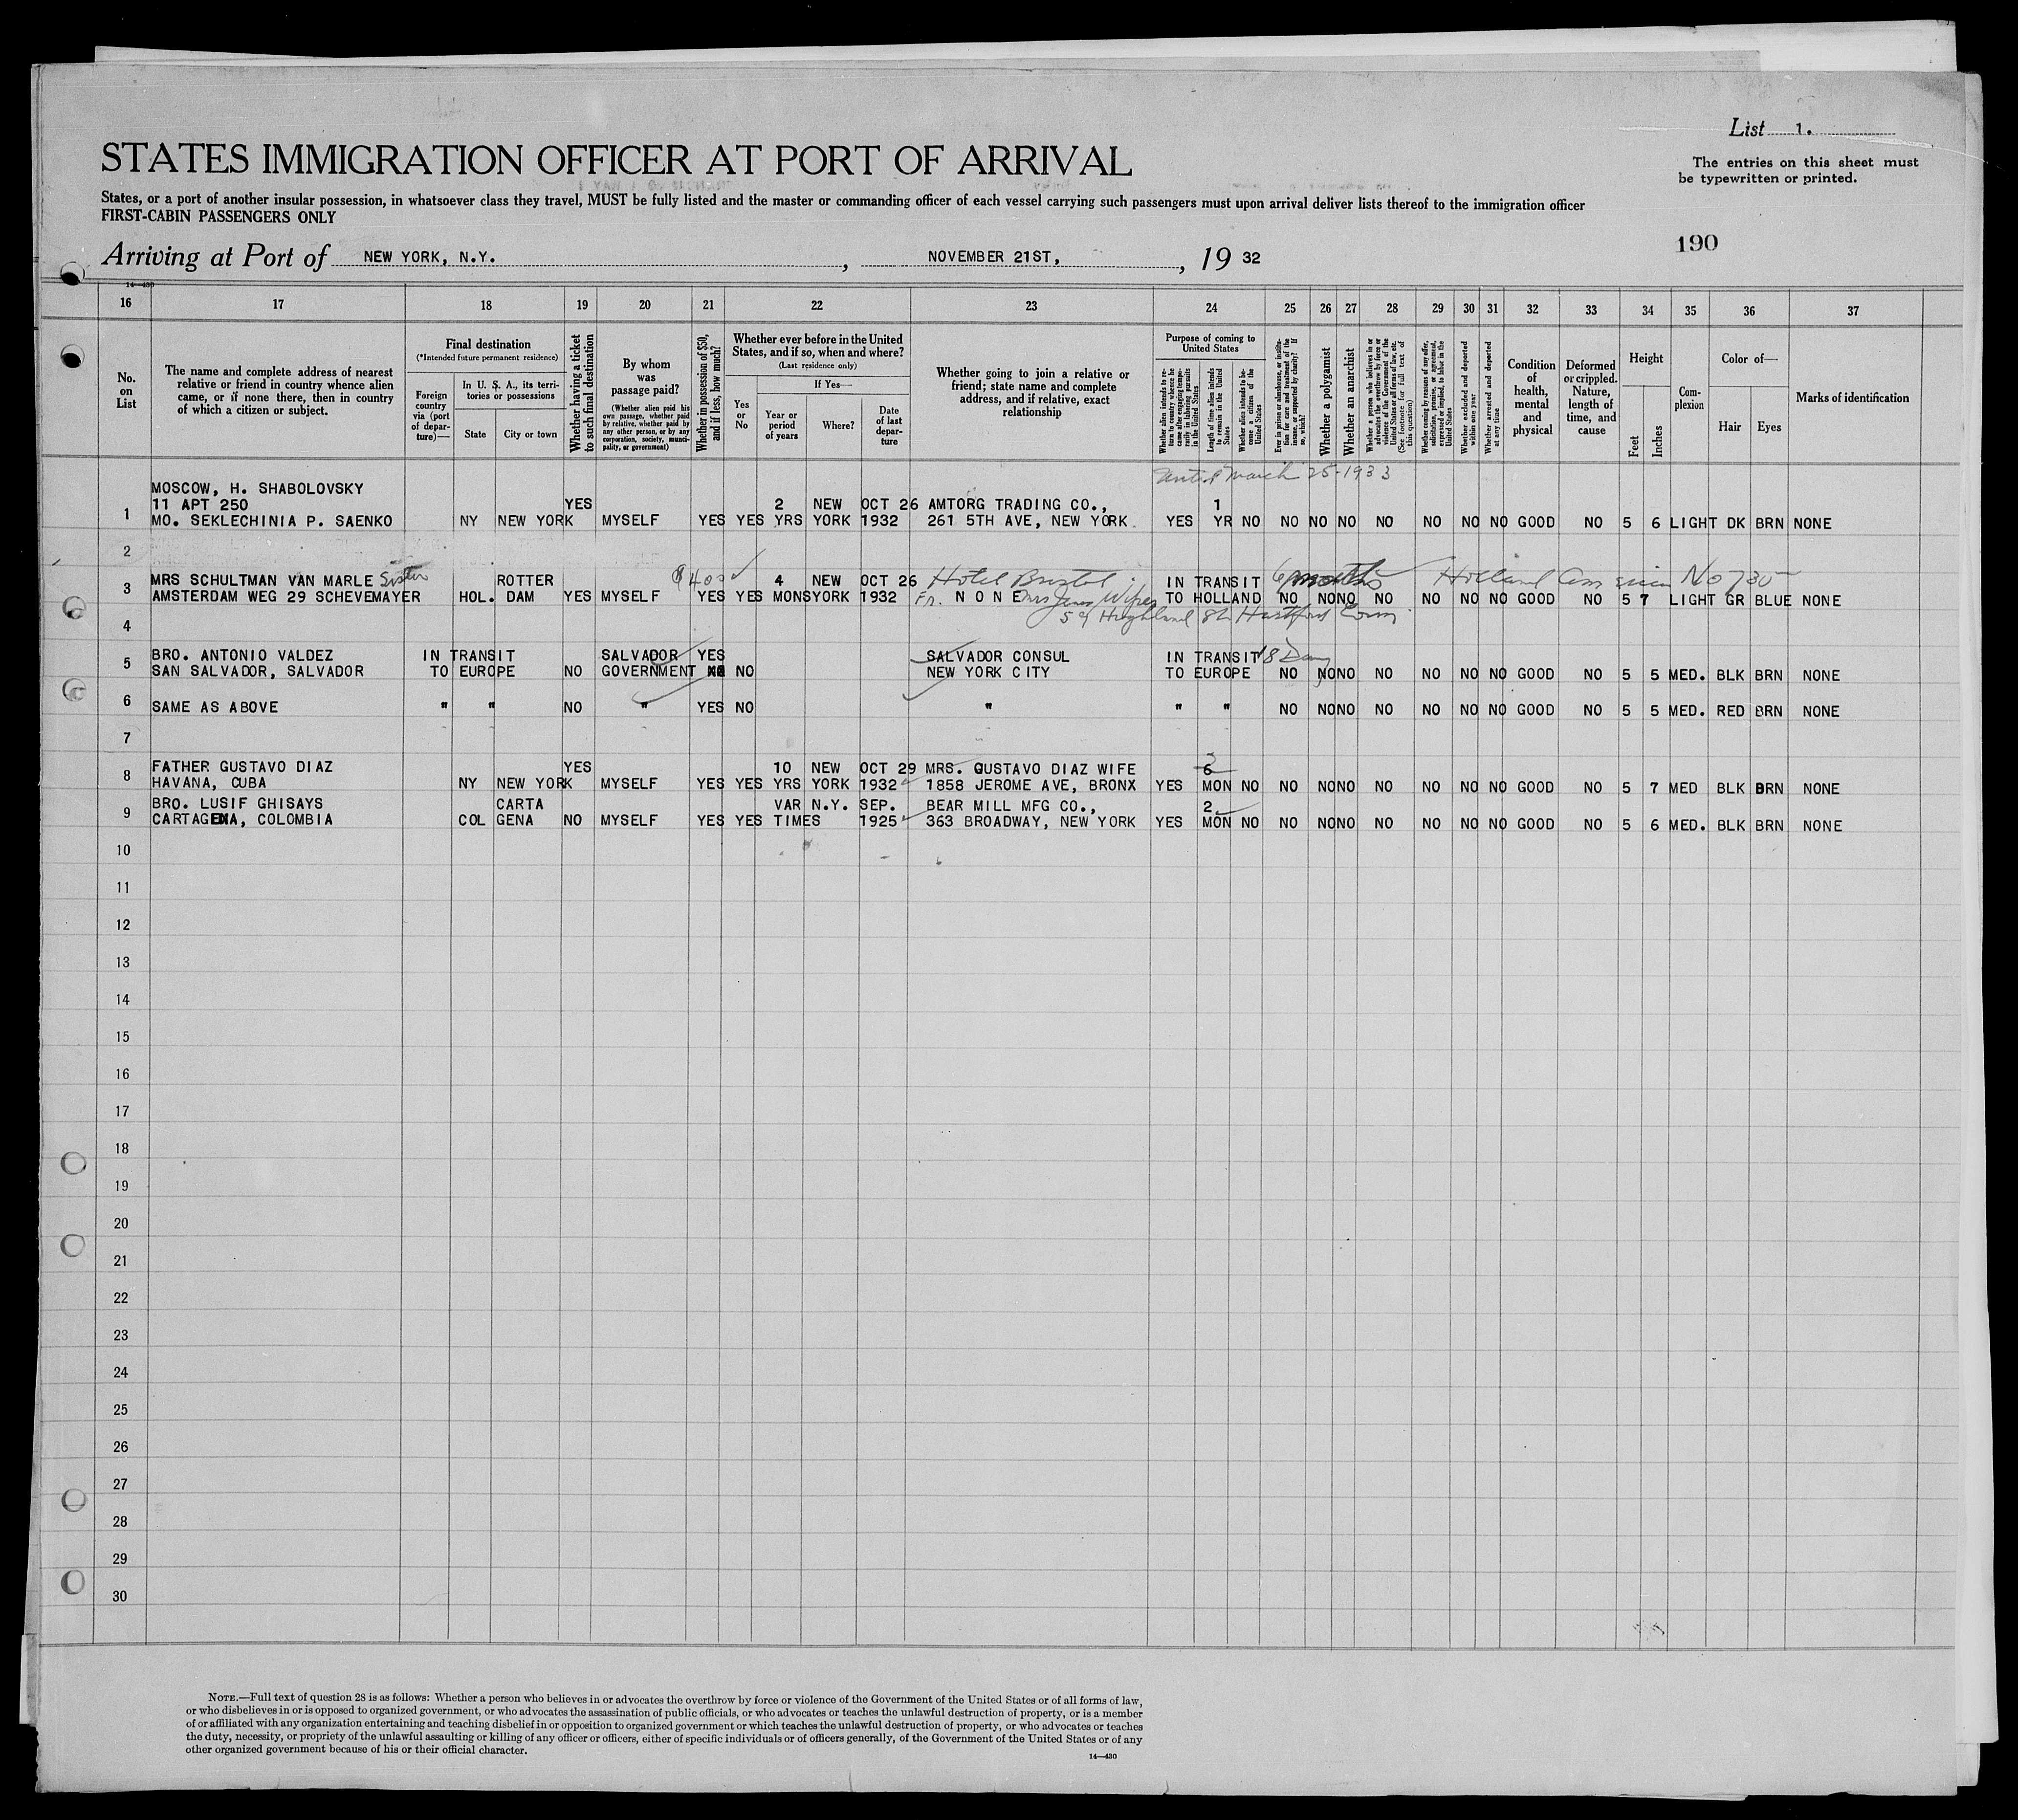 List 1.
STATES IMMIGRATION OFFICER AT PORT OF ARRIVAL
The entries on this sheet must
be typewritten or printed.
States, or a port of another insular possession, in whatsoever class they travel, MUST be fully listed and the master or commanding officer of each vessel carrying such passengers must upon arrival deliver lists thereof to the immigration officer
FIRST-CABIN PASSENGERS ONLY
190
Arriving at Port of NEW YORK, N.Y., NOVEMBER 21ST, , 19 32
14—430
16 17 18 19 20 21 22 23 24 25 26 27 28 29 30 31 32 33 34 35 36 37
No. on List
The name and complete address of nearest relative or friend in country whence alien came, or if none there, then in country of which a citizen or subject.
Final destination
(*Intended future permanent residence)
Foreign country via (port of departure)—
In U. S. A., its territories or possessions
State
City or town
Whether having a ticket to such final destination
By whom was passage paid?
(Whether alien paid his own passage, whether paid by relative, whether paid by any other person, or by any corporation, society, municipality, or government)
Whether in possession of $50, and if less, how much?
Whether ever before in the United States, and if so, when and where?
(Last residence only)
Yes or No
If Yes—
Year or period of years
Where?
Date of last departure
Whether going to join a relative or friend; state name and complete address, and if relative, exact relationship
Purpose of coming to United States
Whether alien intends to return to country whence he came after engaging temporarily in laboring pursuits in the United States
Length of time alien intends to remain in the United States
Whether alien intends to become a citizen of the United States
Ever in prison or almshouse, or institution for care and treatment of the insane, or supported by charity? If so, which?
Whether a polygamist
Whether an anarchist
Whether a person who believes in or advocates the overthrow by force or violence of the Government of the United States or all forms of law, etc. (See footnote for full text of this question)
Whether coming by reasons of any offer, solicitation, promise, or agreement, expressed or implied, to labor in the United States
Whether excluded and deported within one year
Whether arrested and deported at any time
Condition of health, mental and physical
Deformed or crippled. Nature, length of time, and cause
Height
Feet
Inches
Complexion
Color of—
Hair
Eyes
Marks of identification
until March 25-1933
MOSCOW, H. SHABOLOVSKY
11 APT 250 YES 2 NEW OCT 26 AMTORG TRADING CO., 1
1 MO. SEKLECHINIA P. SAENKO NY NEW YORK MYSELF YES YES YRS YORK 1932 261 5TH AVE, NEW YORK YES YR NO NO NO NO NO NO NO NO GOOD NO 5 6 LIGHT DK BRN NONE
2
MRS SCHULTMAN VAN MARLE Sister ROTTER $400 4 NEW OCT 26 Hotel Bristol IN TRANSIT 6 months Holland American No 730
3 AMSTERDAM WEG 29 SCHEVEMAYER HOL. DAM YES MYSELF YES YES MONS YORK 1932 Fr. NONE Mrs Jones TO HOLLAND NO NO NO NO NO NO NO GOOD NO 5 7 LIGHT GR BLUE NONE
59 Highland St Hartford Conn
4
BRO. ANTONIO VALDEZ IN TRANSIT SALVADOR YES SALVADOR CONSUL IN TRANSIT 18 Days
5 SAN SALVADOR, SALVADOR TO EUROPE NO GOVERNMENT NO NO NEW YORK CITY TO EUROPE NO NO NO NO NO NO NO GOOD NO 5 5 MED. BLK BRN NONE
6 SAME AS ABOVE " " NO " YES NO " " " NO NO NO NO NO NO NO GOOD NO 5 5 MED. RED BRN NONE
7
FATHER GUSTAVO DIAZ YES 10 NEW OCT 29 MRS. GUSTAVO DIAZ WIFE 6 3
8 HAVANA, CUBA NY NEW YORK MYSELF YES YES YRS YORK 1932 1858 JEROME AVE, BRONX YES MON NO NO NO NO NO NO NO NO GOOD NO 5 7 MED BLK BRN NONE
BRO. LUSIF GHISAYS CARTA VAR N.Y. SEP. BEAR MILL MFG CO., 2
9 CARTAGENA, COLOMBIA COL GENA NO MYSELF YES YES TIMES 1925 363 BROADWAY, NEW YORK YES MON NO NO NO NO NO NO NO NO GOOD NO 5 6 MED. BLK BRN NONE
10
11
12
13
14
15
16
17
18
19
20
21
22
23
24
25
26
27
28
29
30
NOTE.—Full text of question 28 is as follows: Whether a person who believes in or advocates the overthrow by force or violence of the Government of the United States or of all forms of law,
or who disbelieves in or is opposed to organized government, or who advocates the assassination of public officials, or who advocates or teaches the unlawful destruction of property, or is a member
of or affiliated with any organization entertaining and teaching disbelief in or opposition to organized government or which teaches the unlawful destruction of property, or who advocates or teaches
the duty, necessity, or propriety of the unlawful assaulting or killing of any officer or officers, either of specific individuals or of officers generally, of the Government of the United States or of any
other organized government because of his or their official character.
14—430